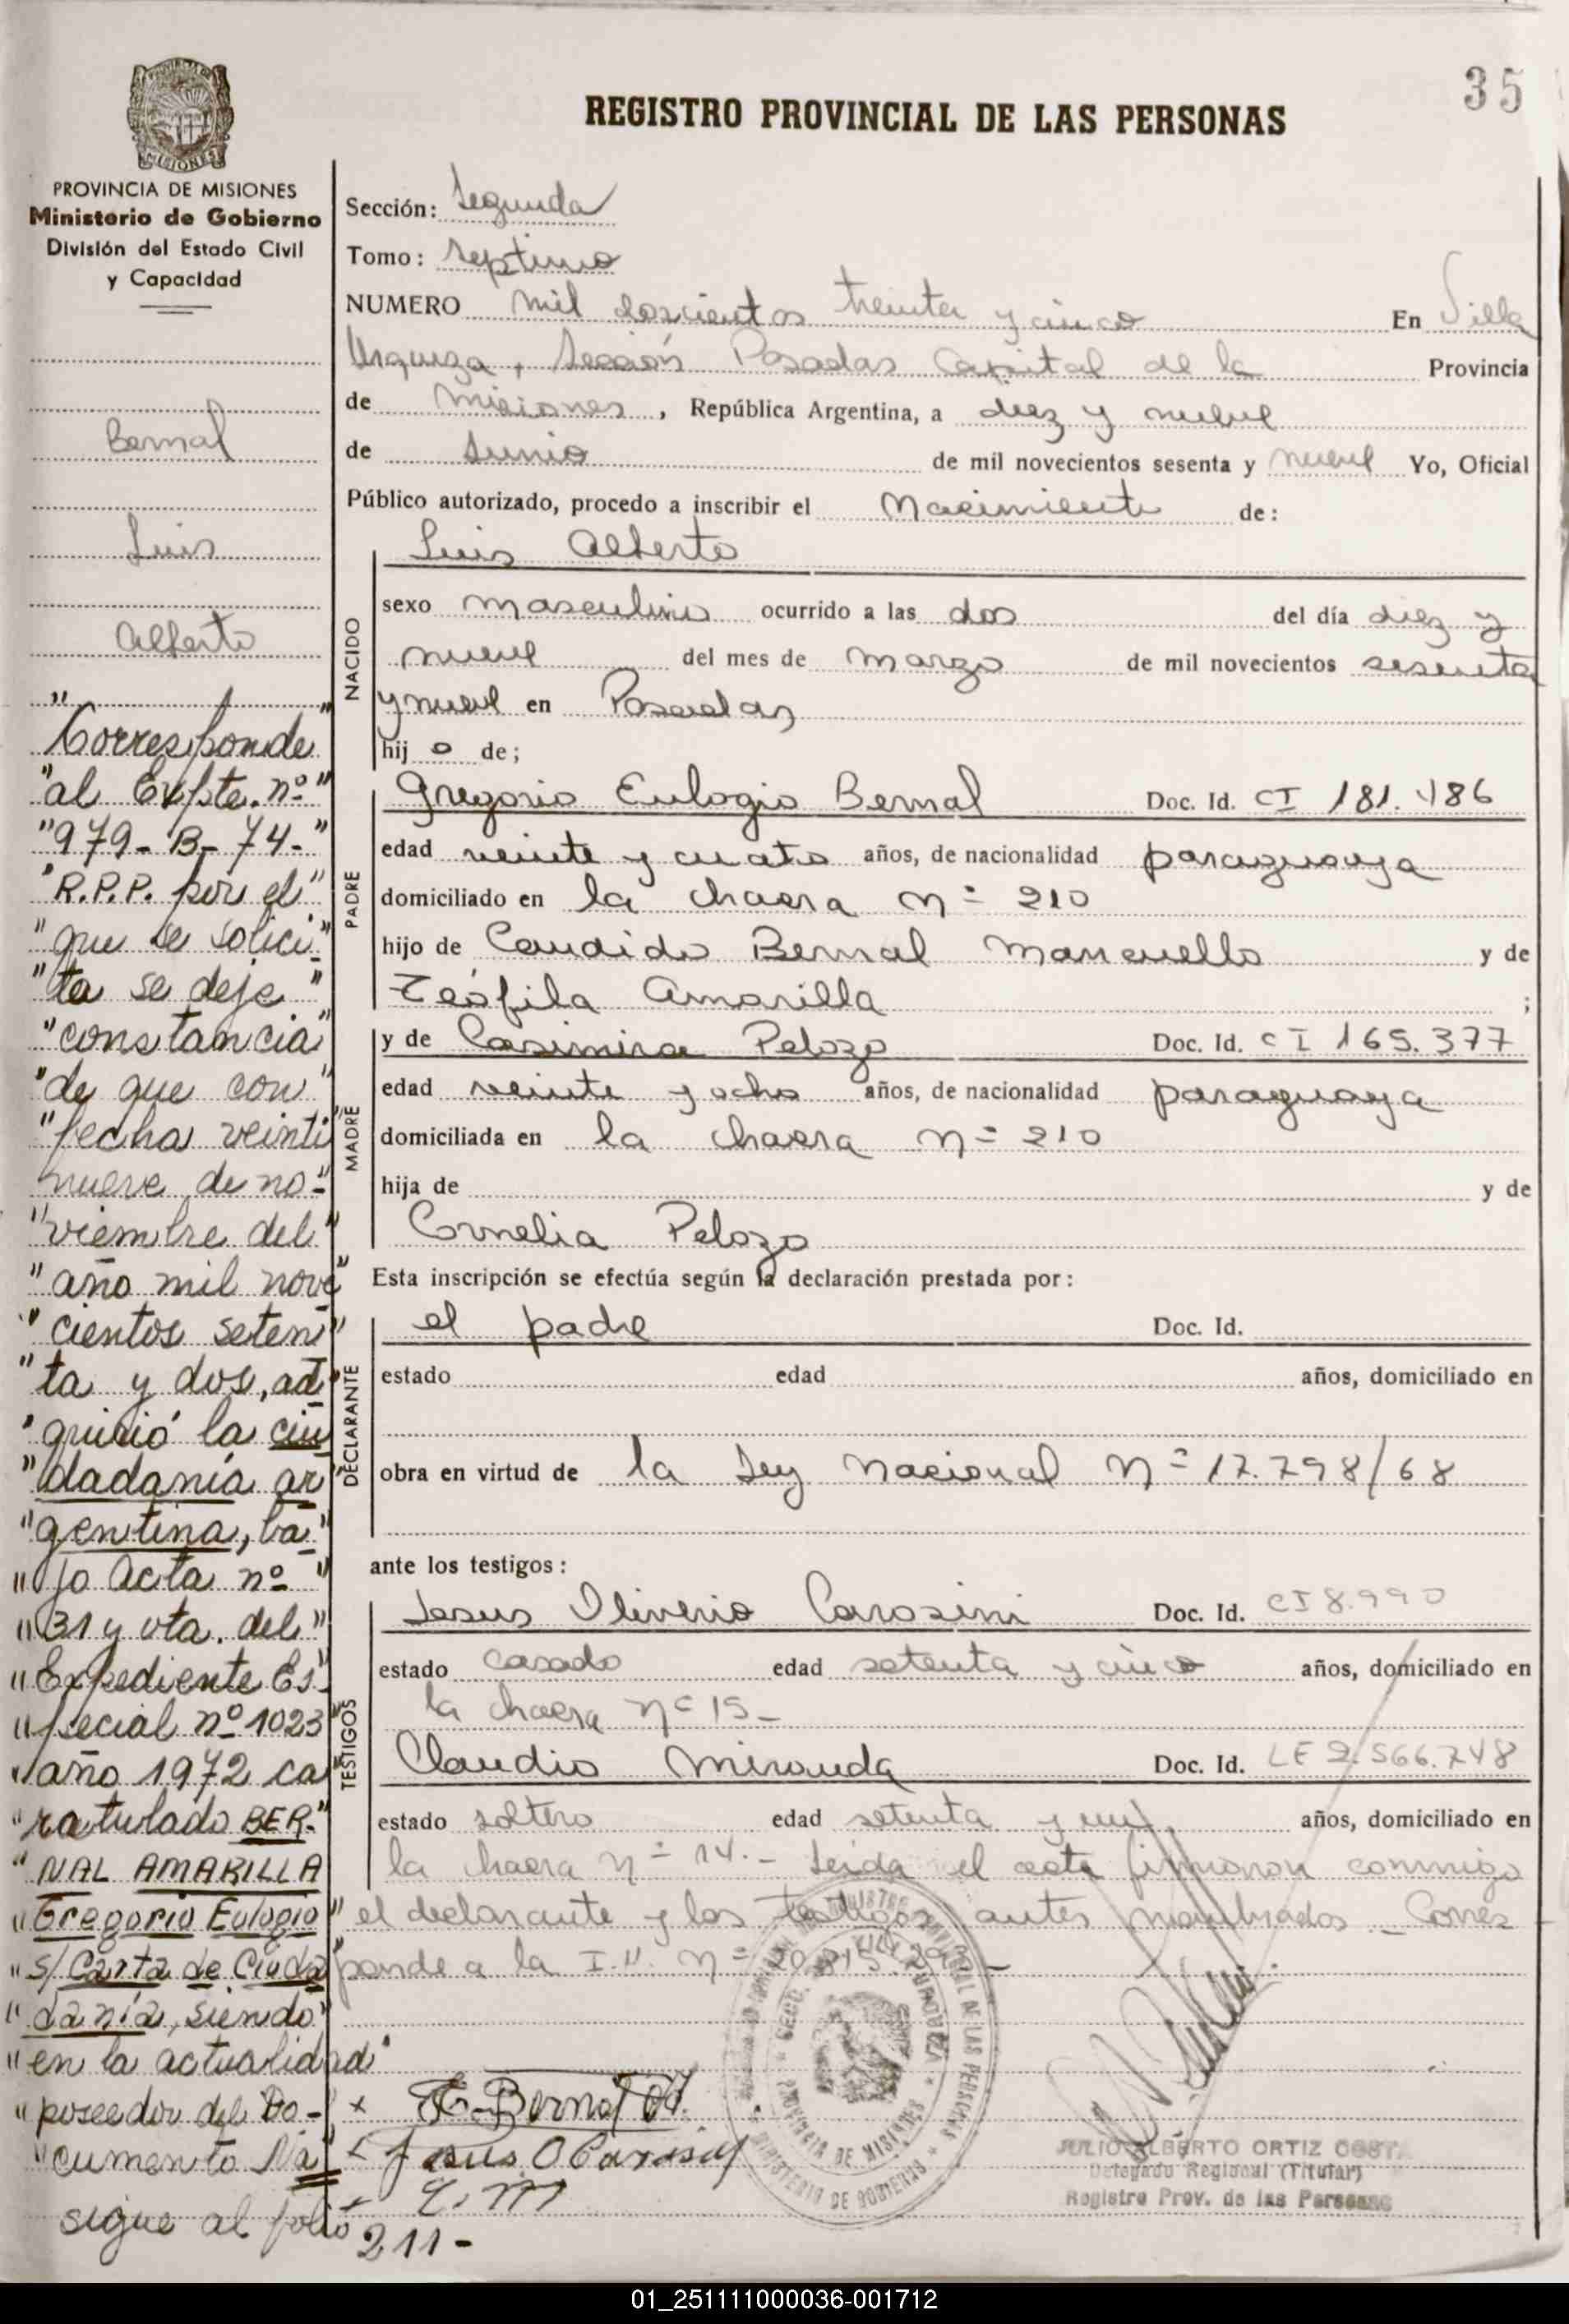 35
REGISTRO PROVINCIAL DE LAS PERSONAS
MISIONES
PROVINCIA DE MISIONES
Ministerio de Gobierno
División del Estado Civil
y Capacidad
Bernal
Luis
Alberto
"Corresponde"
"al Expte. nº"
"979-B-74-"
"R.P.P. por el"
"que se solici"
"ta se deje"
"constancia"
"de que con"
"fecha veinti
nueve de no-"
"viembre del"
"año mil nove"
"cientos seten"
"ta y dos, ad"
"quirió la ciu
"dadanía ar
"gentina, ba"
"jo Acta nº"
"31 y vta. del"
"Expediente Es-
"pecial nº 1023"
"año 1972 ca"
"ratulado BER-"
"NAL AMARILLA
"Gregorio Eulogio"
"s/Carta de Ciuda"
"danía, siendo"
"en la actualidad"
"poseedor del Do-"
"cumento Na"
sigue al folio
211-
Sección: Segunda
Tomo: Septimo
NUMERO mil doscientos treinta y cinco En Villa
Urquiza, Sección Posadas Capital de la Provincia
de Misiones, República Argentina, a diez y nueve
de Junio de mil novecientos sesenta y nueve Yo, Oficial
Público autorizado, procedo a inscribir el Nacimiento de:
NACIDO
Luis Alberto
sexo masculino ocurrido a las dos del día diez y
nueve del mes de marzo de mil novecientos sesenta
y nueve en Posadas
hijo de;
PADRE
Gregorio Eulogio Bernal Doc. Id. CI 181.486
edad veinte y cuatro años, de nacionalidad paraguaya
domiciliado en la chacra nº 210
hijo de Candido Bernal Mancuello y de
Teófila Amarilla ;
MADRE
y de Casimira Pelozo Doc. Id. CI 165.377
edad veinte y ocho años, de nacionalidad paraguaya
domiciliada en la chacra nº 210
hija de y de
Cornelia Pelozo
Esta inscripción se efectúa según la declaración prestada por:
DECLARANTE
el padre Doc. Id.
estado edad años, domiciliado en
obra en virtud de la Ley Nacional Nº 17.798/68
ante los testigos:
TESTIGOS
Jesus Oliverio Carosini Doc. Id. CI 8.990
estado casado edad setenta y cinco años, domiciliado en
la chacra nº 15-
Claudio Miranda Doc. Id. LE 2.566.748
estado soltero edad setenta y un años, domiciliado en
la chacra nº 14.- Leída el acta firmaron conmigo
el declarante y los testigos antes nombrados - Corres
ponde a la
Jesus O Carosini
C. M
PROVINCIA DE MISIONES
MINISTERIO DE GOBIERNO
JULIO ALBERTO ORTIZ COSTA
Delegado Regional (Titular)
Registro Prov. de las Personas
01_251111000036-001712